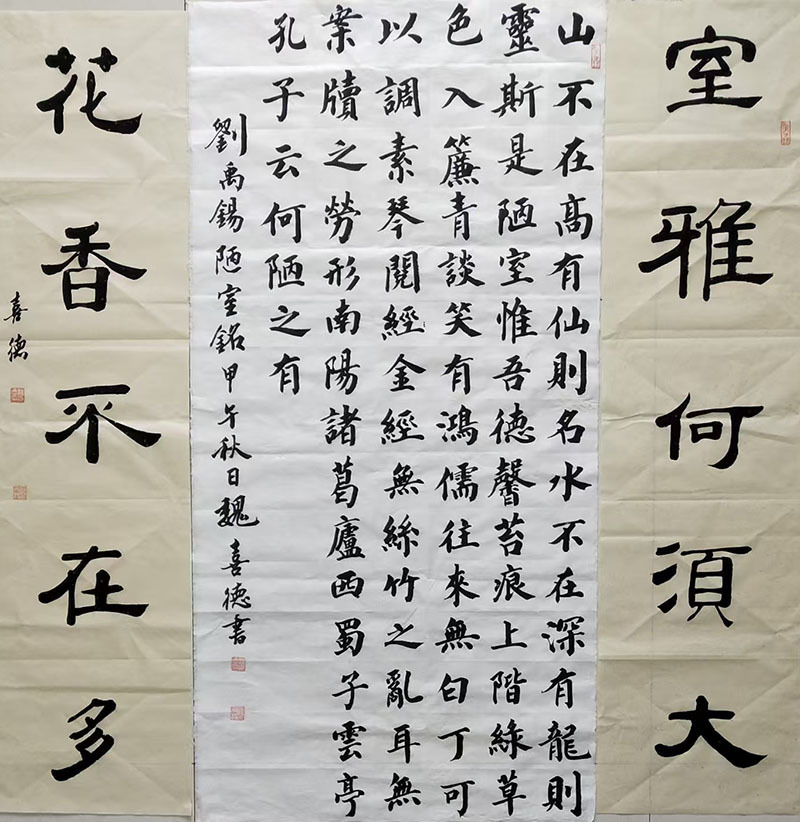 室雅何須大
山不在高有仙則名水不在深有龍則
靈斯是陋室惟吾德馨苔痕上階綠草
色入簾青談笑有鴻儒往來無白丁可
以調素琴閱經金經無絲竹之亂耳無
案牘之勞形南陽諸葛廬西蜀子雲亭
孔子云何陋之有
劉禹錫陋室銘甲午秋日魏喜德書
花香不在多
喜德